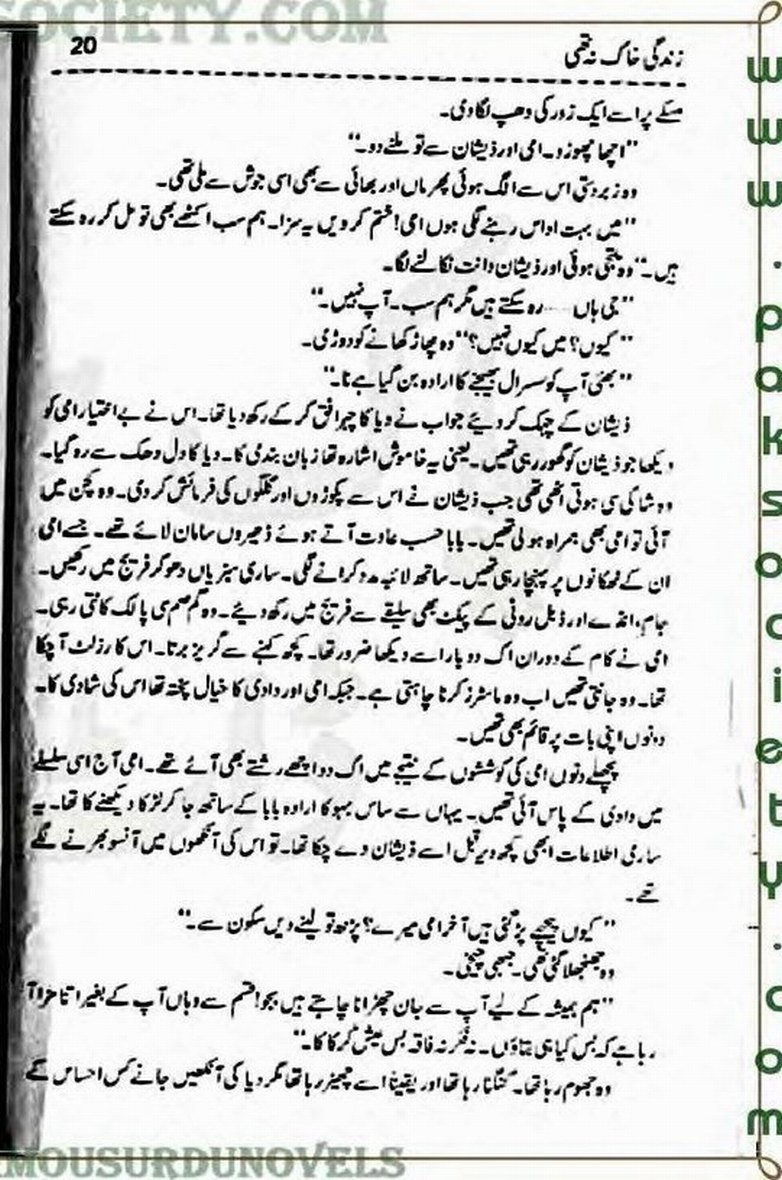 SOCIETY.COM
20
زندگی خاک نہ تھی
مسکے پر اسے ایک زور کی دھپ لگا دی۔
"اچھا چھوڑو۔ امی اور ذیشان سے تو ملنے دو۔"
وہ زبردستی اس سے الگ ہوئی پھر ماں اور بھائی سے بھی اسی جوش سے ملی تھی۔
"میں بہت اداس رہنے لگی ہوں امی! ختم کر دیں یہ سزا۔ ہم سب اکٹھے بھی تو مل کر رہ سکتے
ہیں۔" وہ ملتجی ہوئی اور ذیشان دانت نکالنے لگا۔
"جی ہاں ...... رہ سکتے ہیں مگر ہم سب۔ آپ نہیں۔"
"کیوں؟ میں کیوں نہیں؟" وہ پھاڑ کھانے کو دوڑی۔
"بھئی آپ کو سسرال بھیجنے کا ارادہ بن گیا ہے نا۔"
ذیشان کے چہک کر دیئے جواب نے دیا کا چہرا فق کر کے رکھ دیا تھا۔ اس نے بے اختیار امی کو
دیکھا جو ذیشان کو گھور رہی تھیں۔ یعنی یہ خاموش اشارہ تھا زبان بندی کا۔ دیا کا دل دھک سے رہ گیا۔
وہ شاکی سی ہوتی اٹھی تھی جب ذیشان نے اس سے پکوڑوں اور گلگلوں کی فرمائش کر دی۔ وہ کچن میں
آئی تو امی بھی ہمراہ ہو لی تھیں۔ بابا حسب عادت آتے ہوئے ڈھیروں سامان لائے تھے۔ جسے امی
ان کے ٹھکانوں پر پہنچا رہی تھیں۔ ساتھ لائبہ مدد کرانے لگی۔ ساری سبزیاں دھو کر فریج میں رکھیں۔
جام، انڈے اور ڈبل روٹی کے پیکٹ بھی سلیقے سے فریج میں رکھ دیئے۔ وہ گم صم سی پالک کاٹتی رہی۔
امی نے کام کے دوران اک دو بار اسے دیکھا ضرور تھا۔ کچھ کہنے سے گریز برتا۔ اس کا رزلٹ آ چکا
تھا۔ وہ جانتی تھیں اب وہ ماسٹرز کرنا چاہتی ہے۔ جبکہ امی اور دادی کا خیال پختہ تھا اس کی شادی کا۔
دونوں اپنی بات پر قائم بھی تھیں۔
پچھلے دنوں امی کی کوششوں کے نتیجے میں اک دو اچھے رشتے بھی آئے تھے۔ امی آج اسی سلسلے
میں دادی کے پاس آئی تھیں۔ یہاں سے ساس بہو کا ارادہ بابا کے ساتھ جا کر لڑکا دیکھنے کا تھا۔ یہ
ساری اطلاعات ابھی کچھ دیر قبل اسے ذیشان دے چکا تھا۔ تو اس کی آنکھوں میں آنسو بھرنے لگے
تھے۔
"کیوں پیچھے پڑ گئی ہیں آخر امی میرے؟ پڑھ تو لینے دیں سکون سے۔"
وہ جھنجھلا گئی تھی۔ جبھی چیخی۔
"ہم ہمیشہ کے لیے آپ سے جان چھڑانا چاہتے ہیں بجو! قسم سے وہاں آپ کے بغیر اتنا مزا آ
رہا ہے کہ بس کیا ہی بتاؤں۔ نہ فکر نہ فاقہ بس عیش کر کاکا۔"
وہ جھوم رہا تھا۔ گنگنا رہا تھا اور یقیناً اسے چھیڑ رہا تھا مگر دیا کی آنکھیں جانے کس احساس کے
www.paksociety.com
MOUSURDUNOVELS